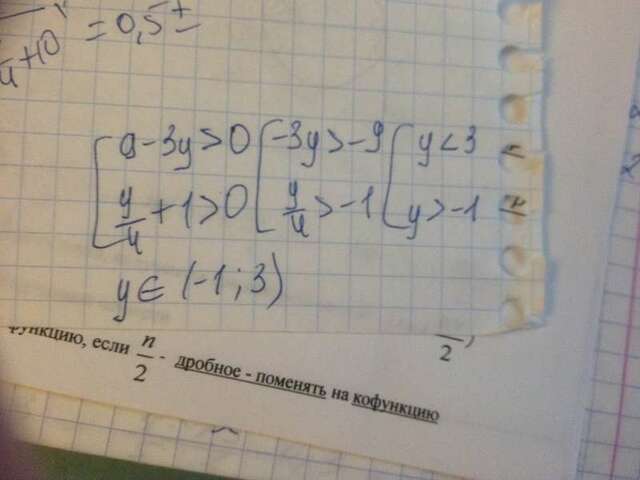 4+10 = 0,5 ±
[ 9-3y>0 [ -3y>-9 [ y<3
[ y/4 +1>0 [ y/4 >-1 [ y>-1
y ∈ (-1; 3)
функцию, если n/2 - дробное - поменять на кофункцию
2 ,